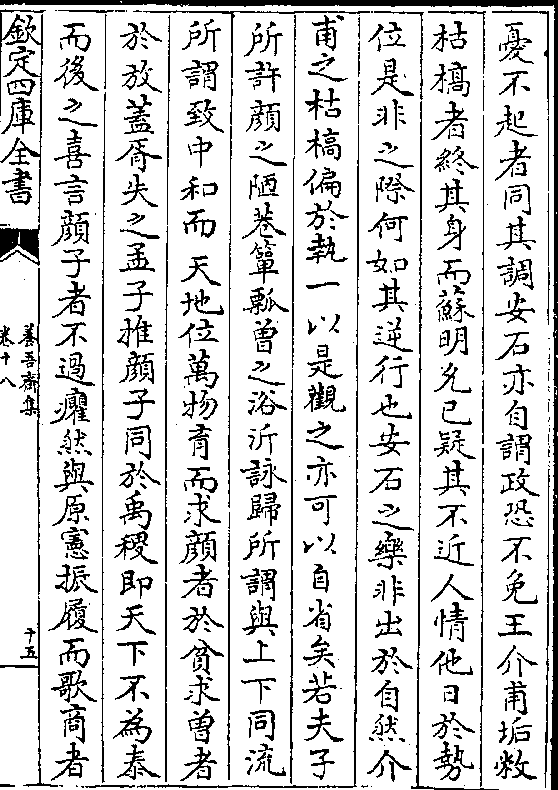 憂不起者同其調安石亦自謂政恐不免王介甫垢敝
枯槁者終其身而蘇明允已疑其不近人情他日於勢
位是非之際何如其逆行也安石之樂非出於自然介
甫之枯槁偏於執一以是觀之亦可以自省矣若夫子
所許顔之陋巷簞瓢曽之浴沂詠歸所謂與上下同流
所謂致中和而天地位萬物育而求顔者於貧求曽者
於放蓋胥失之孟子推顔子同於禹稷即天下不為泰
而後之喜言顔子者不過癯然與原憲振履而歌商者
欽定四庫全書
養吾齋集
卷十八
十五